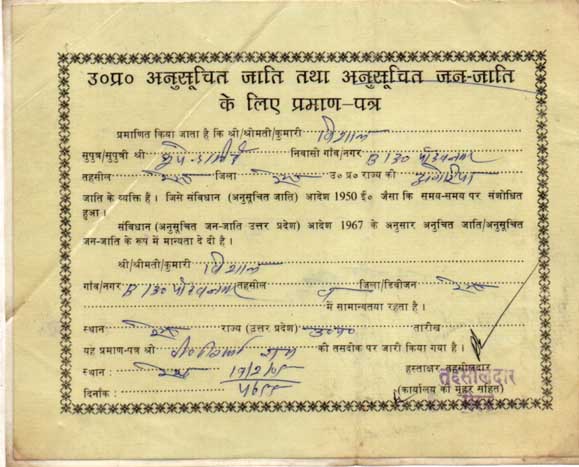 उ०प्र० अनुसूचित जाति तथा अनुसूचित जन-जाति
के लिए प्रमाण-पत्र
प्रमाणित किया जाता है कि श्री/श्रीमती/कुमारी विशाल
सुपुत्र/सुपुत्री श्री निवासी गाँव/नगर B 130
तहसील जिला उ० प्र० राज्य की
जाति के व्यक्ति हैं। जिसे संविधान (अनुसूचित जाति) आदेश 1950 ई० जैसा कि समय-समय पर संशोधित
हुआ।
संविधान (अनुसूचित जन-जाति उत्तर प्रदेश) आदेश 1967 के अनुसार अनुचित जाति/अनुसूचित
जन-जाति के रूप में मान्यता दे दी है।
श्री/श्रीमती/कुमारी विशाल
गाँव/नगर B 130 तहसील जिला/डिवीजन
में सामान्यतया रहता है।
स्थान राज्य (उत्तर प्रदेश) उ०प्र० तारीख
यह प्रमाण-पत्र श्री की तसदीक पर जारी किया गया है।
हस्ताक्षर तहसीलदार
स्थान :
तहसीलदार
दिनांक : (कार्यालय की मुहर सहित)